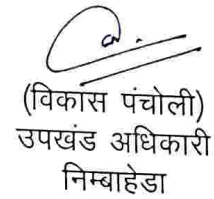 (विकास पंचोली)
उपखंड अधिकारी
निम्बाहेडा